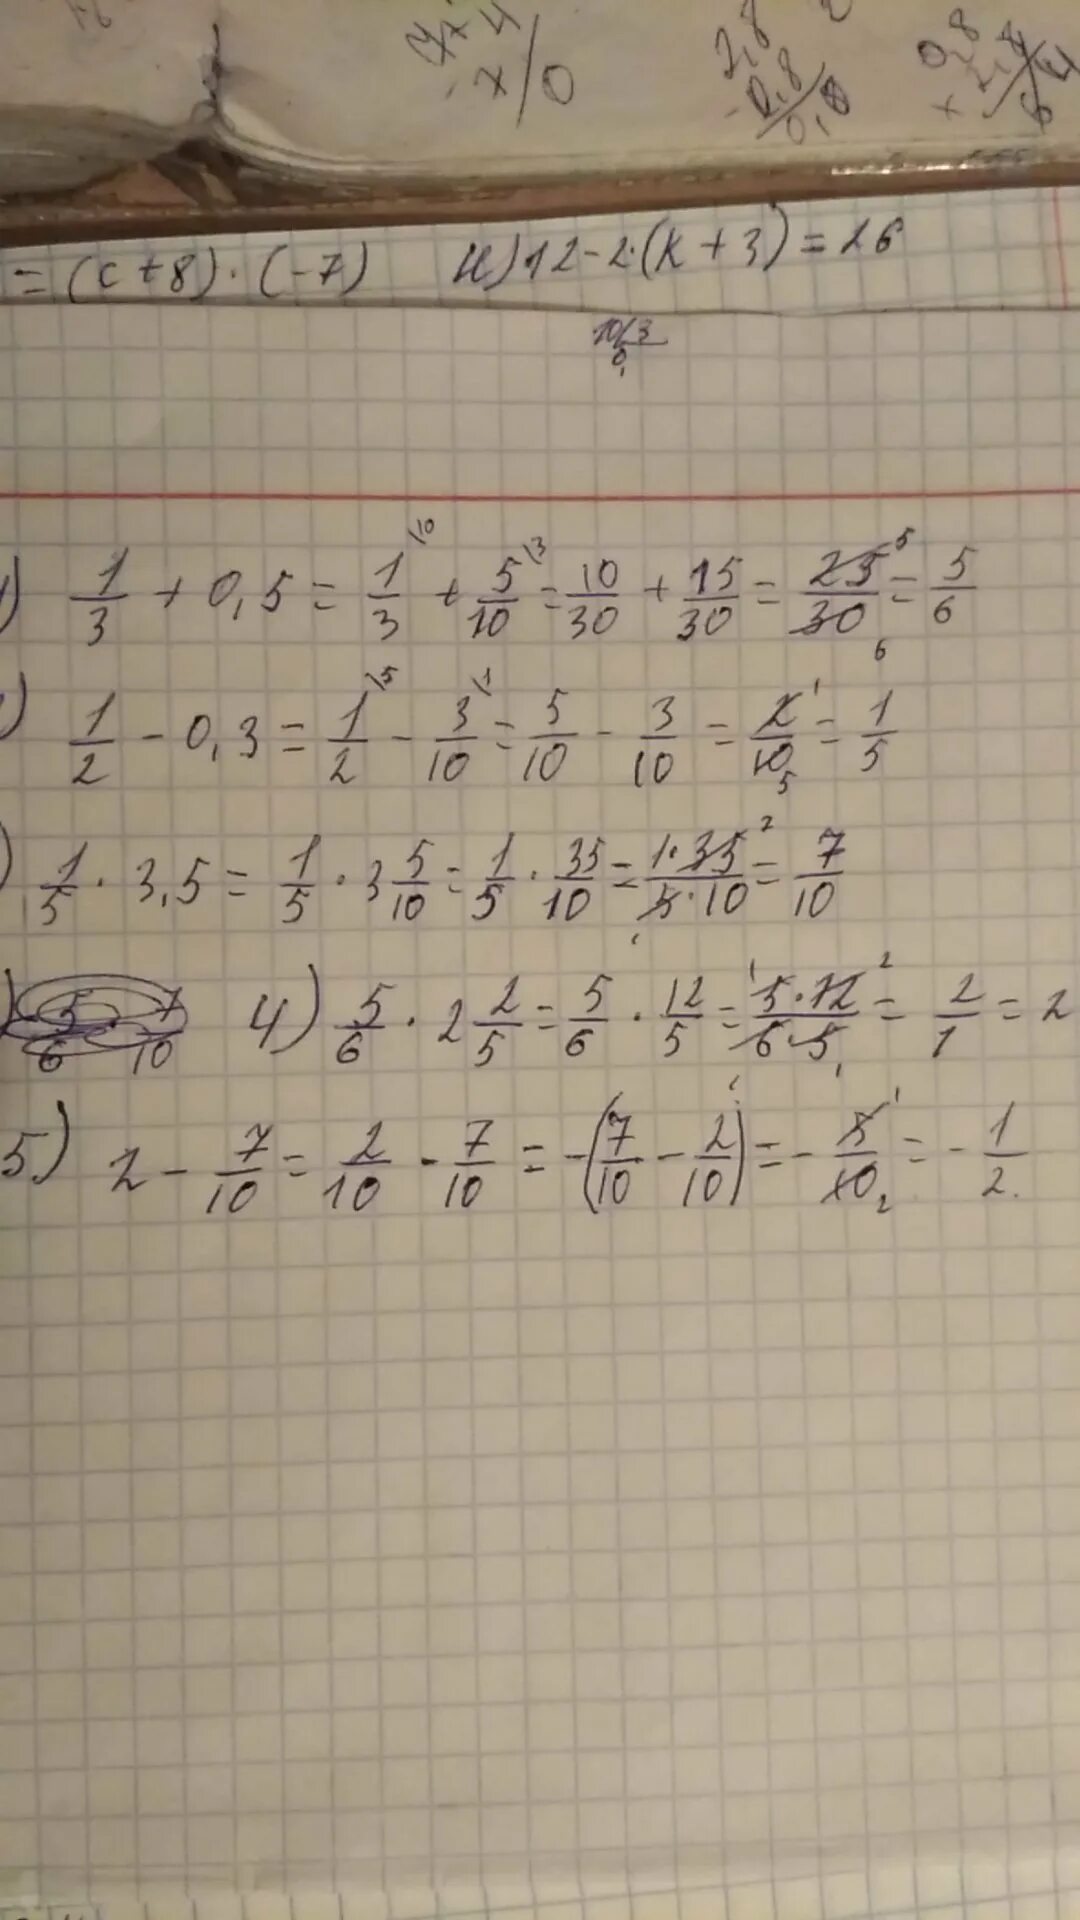 2,8
-0,8
0,8
= (c+8)·(-7) и) 12-2·(k+3)=26
10 3
0,
1/3 + 0,5 = 1/3 \10 + 5/10 \3 = 10/30 + 15/30 = 25/30 5 6 = 5/6
1/2 - 0,3 = 1/2 \5 - 3/10 \1 = 5/10 - 3/10 = 2/10 1 5 = 1/5
1/5 · 3,5 = 1/5 · 3 5/10 = 1/5 · 35/10 = 1·35/5·10 = 7/10
4) 5/6 · 2 2/5 = 5/6 · 12/5 = 5·12/6·5 = 2/1 = 2
5) 2 - 7/10 = 2/10 - 7/10 = -(7/10 - 2/10) = - 5/10 1 2 = - 1/2